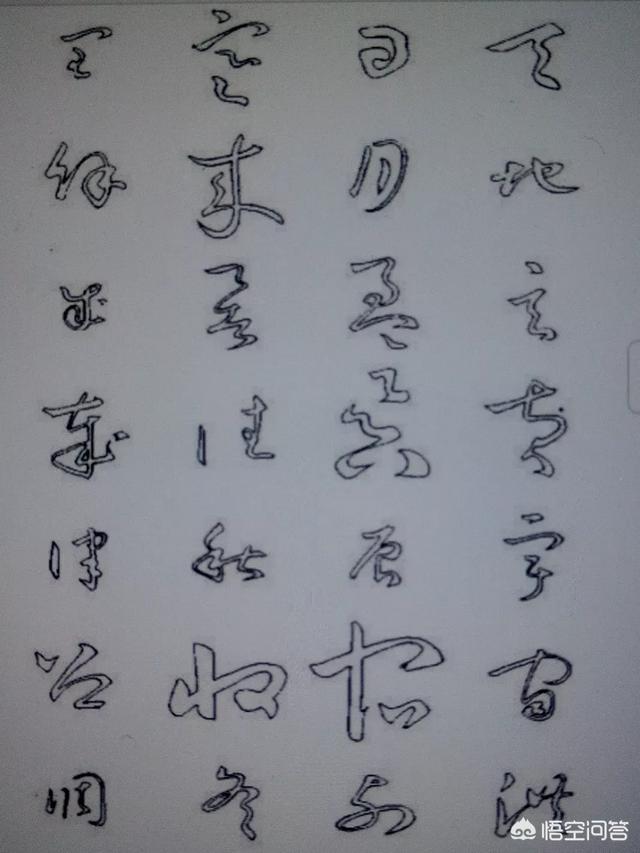 天地玄黄宇宙洪
日月盈昃辰宿列
寒來暑往秋收冬
閏餘成歲律呂調
悟空问答